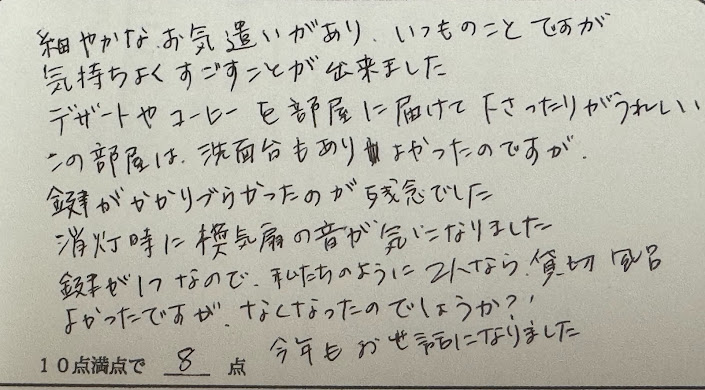 細やかな、お気遣いがあり、いつものことですが
気持ちよくすごすことが出来ました
デザートやコーヒーを部屋に届けて下さったりがうれしい
この部屋は、洗面台もありよかったのですが、
鍵がかかりづらかったのが残念でした
消灯時に換気扇の音が気になりました
鍵が1つなので、私たちのように2人なら、貸切風呂
よかったですが、なくなったのでしょうか?!
今年もお世話になりました
10点満点で 8 点